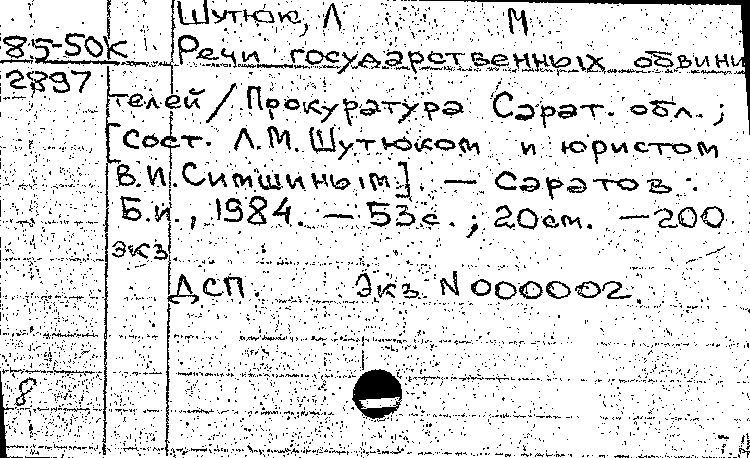 Шутюк, Л М
85-50К Речи государственных обвини
2897
телей / Прокуратура Сарат. обл.;
[Сост. Л.М. Шутюком и юристом
В.И. Симшиным]. — Саратов:
Б.и., 1984. — 53с.; 20см. — 200
экз.
ДСП. Экз N 000002.
8